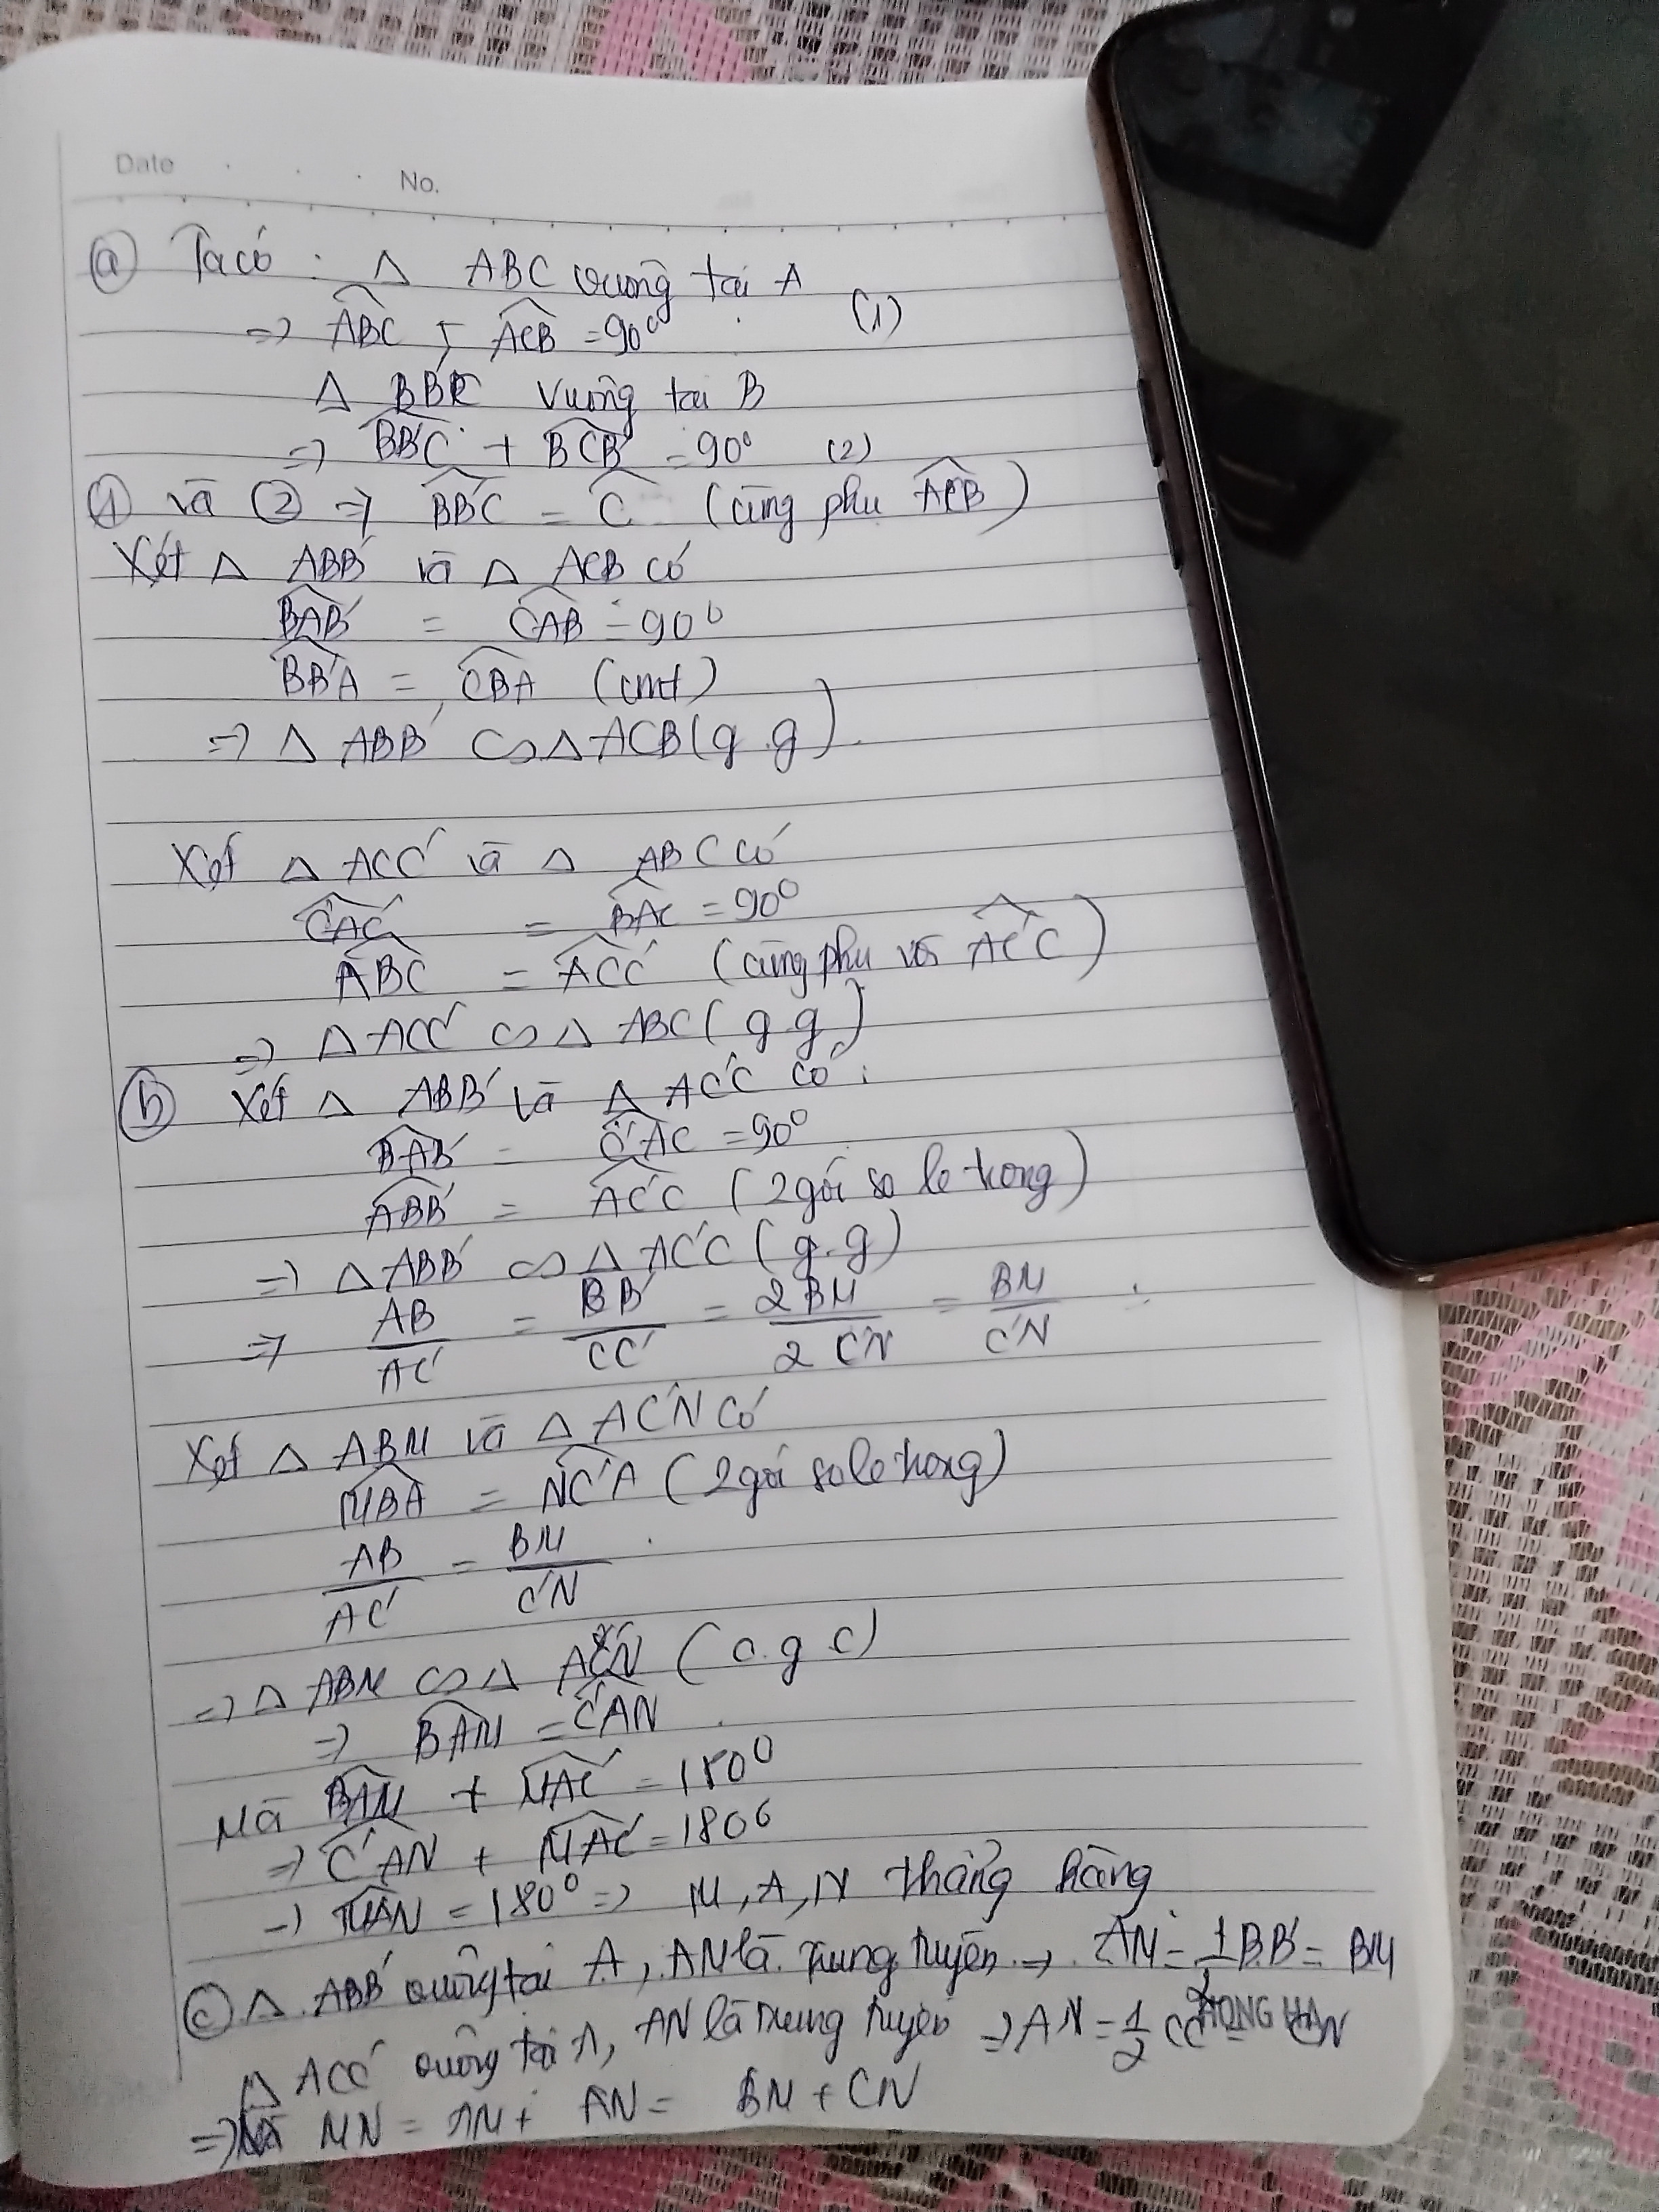 Date . . . No.
ⓐ Ta có : Δ ABC vuông tại A
=> ABC + ACB = 90⁰ (1)
Δ BB'C vuông tại B
=> BB'C + BCB' = 90⁰ (2)
① và ② => BB'C = C (cùng phụ ACB)
Xét Δ ABB' và Δ ACB có
BAB' = CAB = 90⁰
BB'A = CBA (cmt)
=> Δ ABB' ∽ Δ ACB (g.g).
Xét Δ ACC' và Δ ABC có
CAC' = BAC = 90⁰
ABC = ACC' (cùng phụ với AC'C)
=> Δ ACC' ∽ Δ ABC (g.g)
ⓑ Xét Δ ABB' và Δ AC'C có :
BAB' = C'AC = 90⁰
ABB' = AC'C (2 gói so le trong)
=> Δ ABB' ∽ Δ AC'C (g.g)
=> AB/AC' = BB'/CC' = 2BM/2C'N = BM/C'N
Xét Δ ABM và Δ AC'N có
MBA = NC'A (2 gói so le trong)
AB/AC' = BM/C'N .
=> Δ ABM ∽ Δ AC'N (c.g.c)
=> BAM = C'AN .
Mà BAM + MAC' = 180⁰
=> C'AN + MAC' = 180⁰
=> MAN = 180⁰ => M, A, N thẳng hàng
ⓒ Δ ABB' vuông tại A, AM là trung tuyến => AM = 1/2 BB' = BM
Δ ACC' vuông tại A, AN là trung tuyến => AN = 1/2 CC' = CN
HONG HA
=> MN = AM + AN = BM + CN